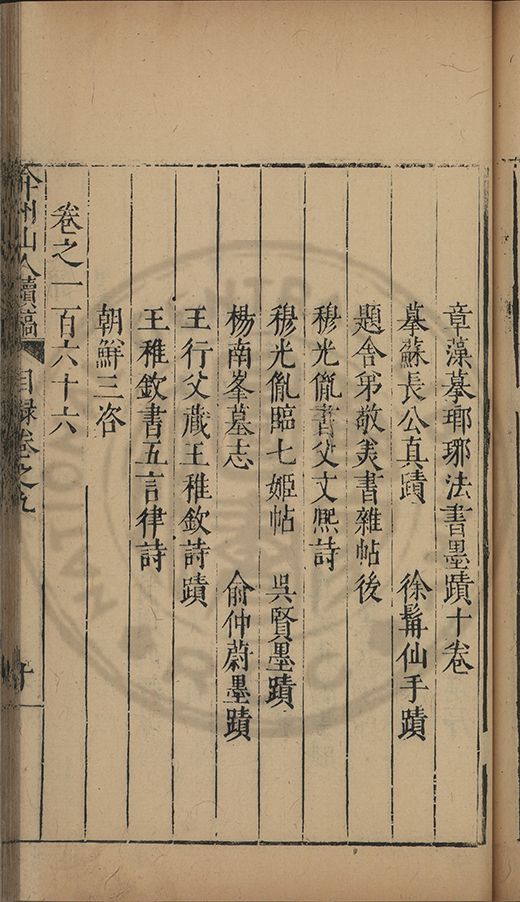 章藻摹瑯琊法書墨蹟十卷
摹蘇長公真蹟 徐髯仙手蹟
題舍弟敬美書雜帖後
穆光胤書父文熙詩
穆光胤臨七姬帖 吳賢墨蹟
楊南峯墓志 俞仲蔚墨蹟
王行父藏王稚欽詩蹟
王稚欽書五言律詩
朝鮮三咨
卷之一百六十六
弇州山人續稿 目録卷之九